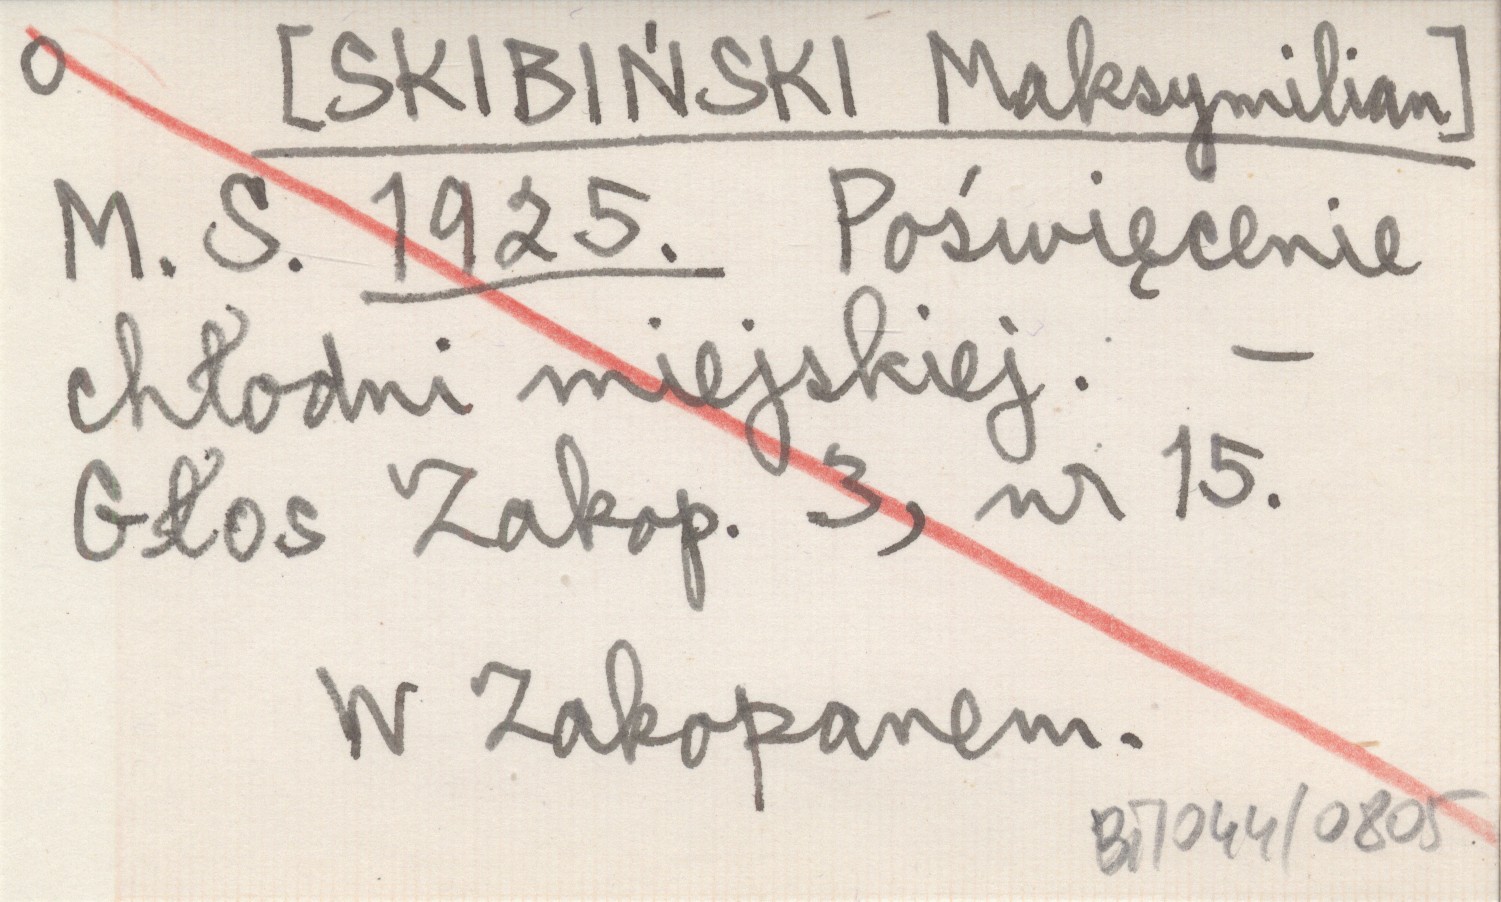 o [SKIBIŃSKI Maksymilian]
M. S. 1925. Poświęcenie
chłodni miejskiej. –
Głos Zakop. 3, nr 15.
W Zakopanem.
Bi7044/0805